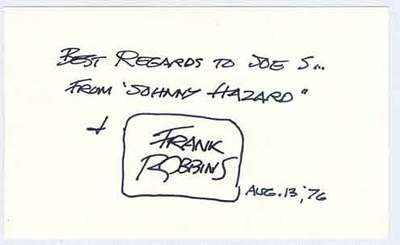 BEST REGARDS TO JOE S...
FROM "JOHNNY HAZARD"
+
FRANK
ROBBINS
AUG. 13, '76